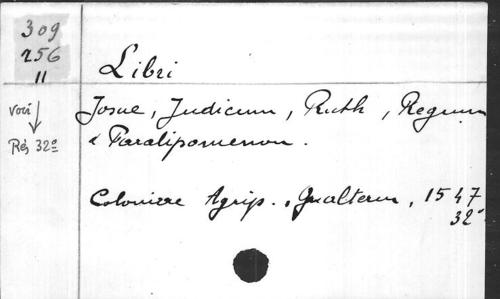 309
256
11
Libri
voir
Rés 32º
Josue, Judicum, Ruth, Regum
& Paralipomenon.
Coloniae Agrip., Gualterum, 1547
32º